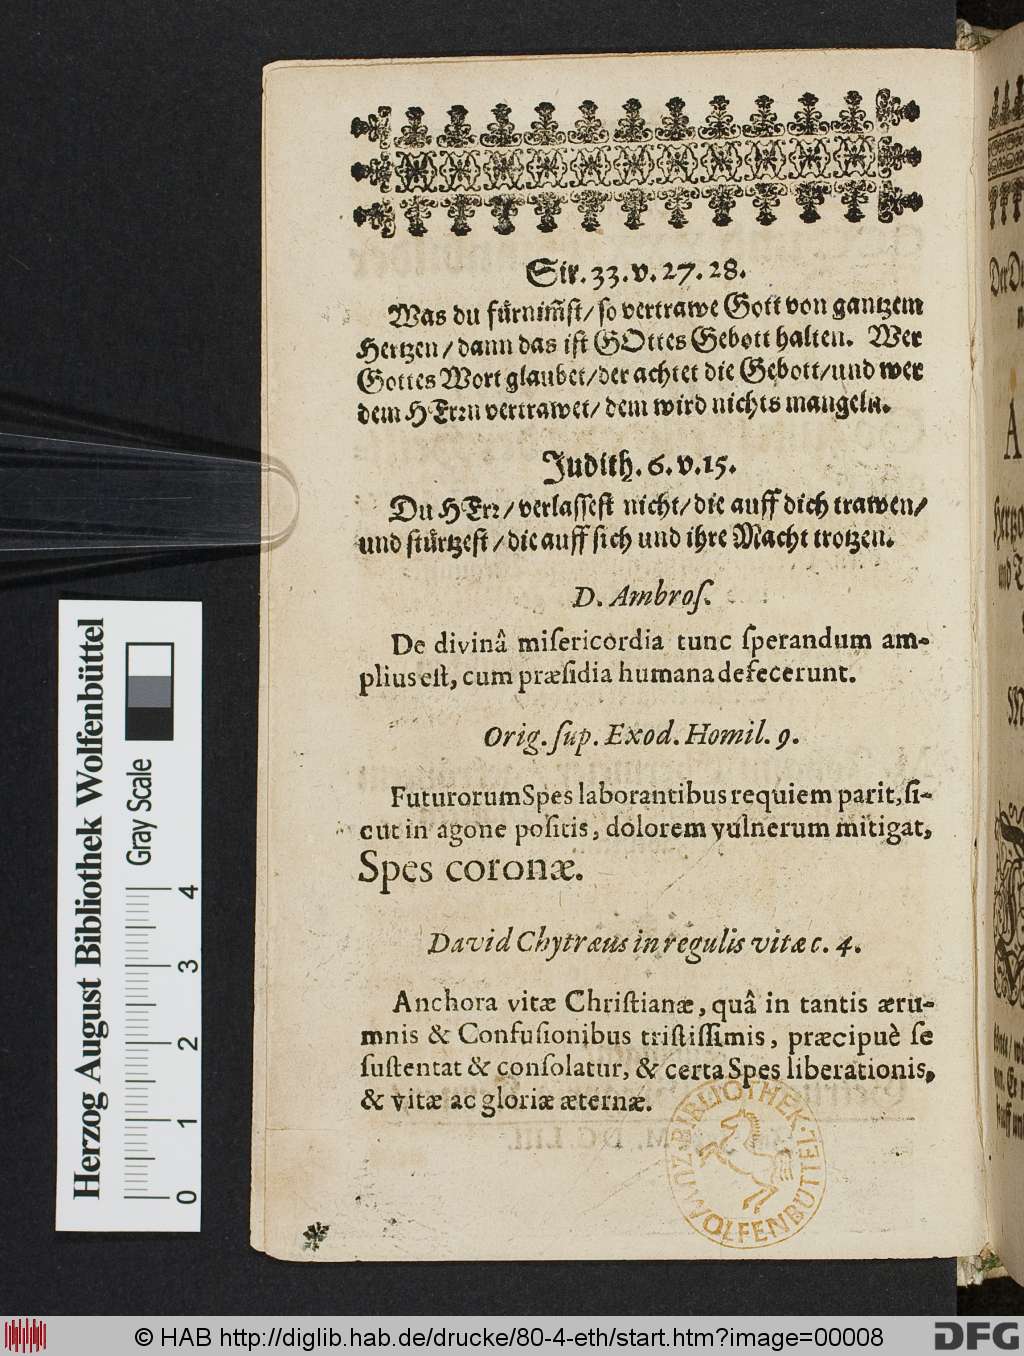 Sir. 33. v. 27. 28.
Was du fürnim̃st/ so vertrawe Gott von gantzem
Hertzen/ dann das ist GOttes Gebott halten. Wer
Gottes Wort glaubet/ der achtet die Gebott/ und wer
dem HErrn vertrawet/ dem wird nichts mangeln.
Judith. 6. v. 15.
Du HErr/ verlassest nicht/ die auff dich trawen/
und stürtzest/ die auff sich und ihre Macht trotzen.
D. Ambroſ.
De divinâ miſericordia tunc ſperandum am-
plius eſt, cum præſidia humana defecerunt.
Orig. ſup. Exod. Homil. 9.
Futurorum Spes laborantibus requiem parit, ſi-
cut in agone poſitis, dolorem vulnerum mitigat,
Spes coronæ.
David Chytræus in regulis vitæ c. 4.
Anchora vitæ Chriſtianæ, quâ in tantis æru-
mnis & Confuſionibus triſtiſſimis, præcipuè ſe
ſuſtentat & conſolatur, & certa Spes liberationis,
& vitæ ac gloriæ æternæ.
BIBLIOTHEK ZU WOLFENBUTTEL
Herzog August Bibliothek Wolfenbüttel
Gray Scale
0 1 2 3 4
© HAB http://diglib.hab.de/drucke/80-4-eth/start.htm?image=00008
DFG